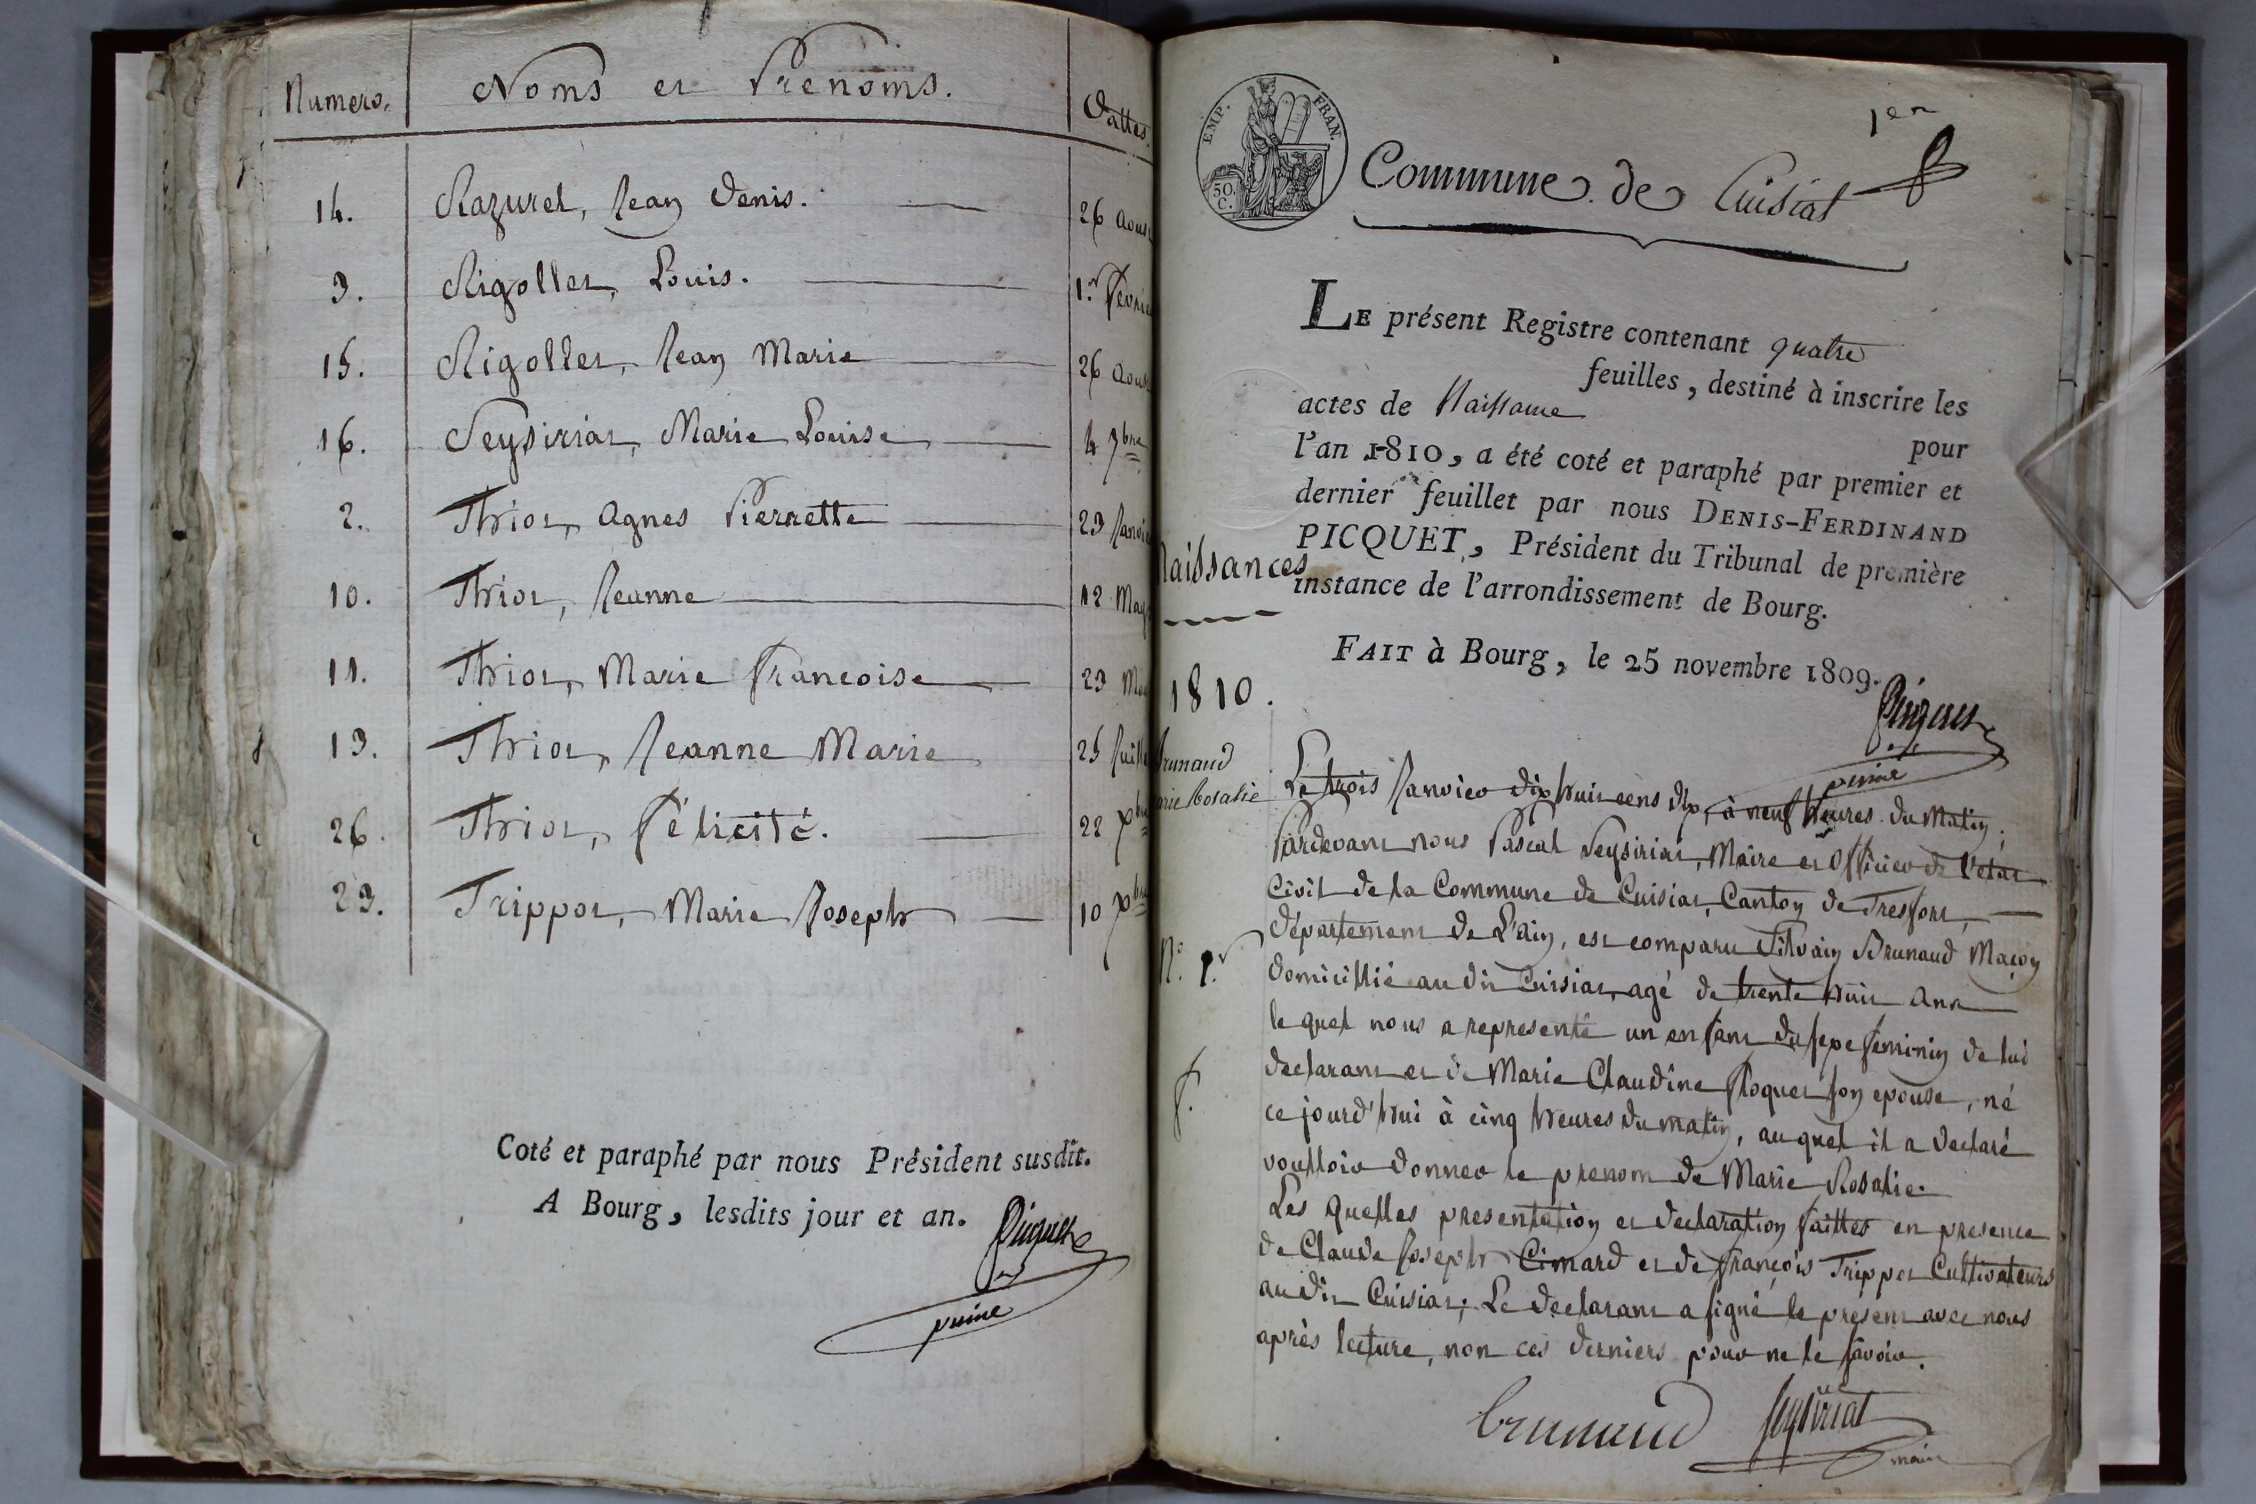 Numero. Noms et Prenoms. Dattes
14. Razuret, Jean Denis. 26 Aoust
3. Rigollet, Louis. 1.er fevrier
15. Rigollet, Jean Marie 26 Aoust
16. Seysiriat, Marie Louise 4 7bre
2. Thriot, Agnes Pierrette 23 Janvie
10. Thriot, Jeanne 12 May
11. Thriot, Marie francoise 23 May
13. Thriot, Jeanne Marie 25 Juille
26. Thriot, Félicité. 22 xbre
23. Trippot, Marie Joseph 10 xbre
Coté et paraphé par nous Président susdit.
A Bourg, lesdits jour et an.
Picquet
1er
EMP. FRAN.
50. C.
Commune de Cuisiat
LE présent Registre contenant quatre
feuilles, destiné à inscrire les
actes de Naissance
pour
l'an 1810, a été coté et paraphé par premier et
dernier feuillet par nous DENIS-FERDINAND
PICQUET, Président du Tribunal de première
instance de l'arrondissement de Bourg.
FAIT à Bourg, le 25 novembre 1809.
Picquet
Naissances
1810.
Brunaud
Marie Rosalie
N.o 1.er
f.
Le trois Janvier dix huit cens dix, à neuf heures du matin,
Pardevant nous Pascal Seysiriat, Maire et Officier de l'état
Civil de la Commune de Cuisiat, Canton de Tresfort,
département de L'ain, est comparu Silvain Brunaud Maçon
domicillié au dit Cuisiat, agé de trente huit ans
le quel nous a representé un enfant du sexe feminin de lui
declarant et de Marie Claudine floquet son epouse, né
ce jourd'hui à cinq heures du matin, au quel il a declaré
voulloir donner le prenom de Marie Rosalie.
Les quelles presentation et declaration faittes en presence
de Claude Joseph Cimard et de françois Trippot Cultivateurs
au dit Cuisiat; Le declarant a signé le present avec nous
après lecture, non ces derniers pour ne le savoir.
brunaud Seysiriat
maire